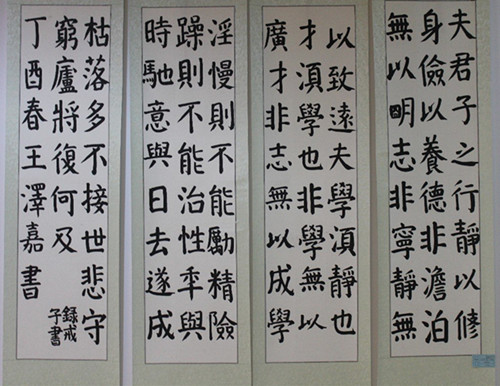 夫君子之行靜以修
身儉以養德非澹泊
無以明志非寧靜無
以致遠夫學湏靜也
才湏學也非學無以
廣才非志無以成學
淫慢則不能勵精險
躁則不能治性年與
時馳意與日去遂成
枯落多不接世悲守
窮廬將復何及
錄戒子書
丁酉春王澤嘉書